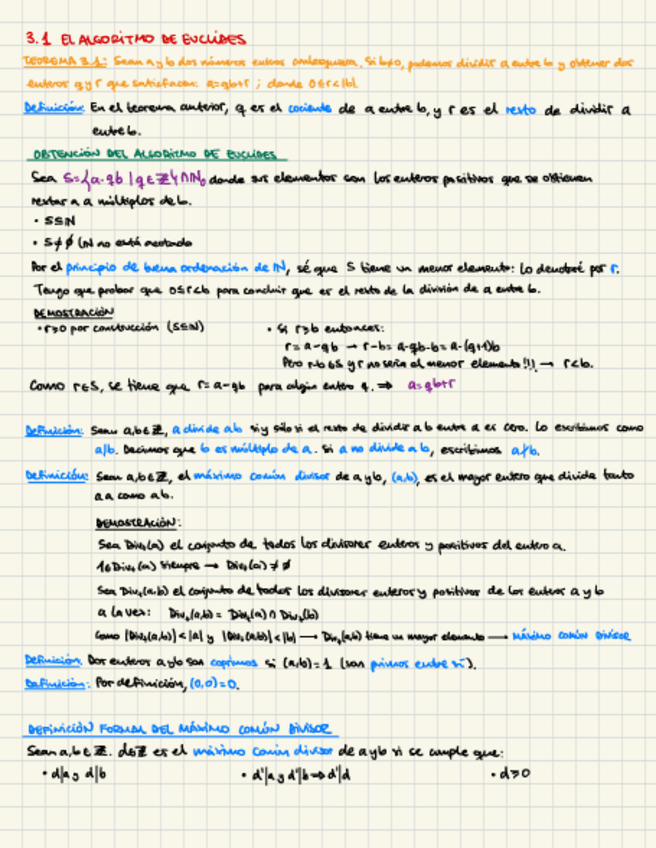 3.1 EL ALGORITMO DE EUCLIDES
TEOREMA 3.1: Sean a y b dos números enteros cualesquiera. Si b≠0, podemos dividir a entre b y obtener dos
enteros q y r que satisfacen: a=qb+r ; donde 0≤r<|b|.
Definición: En el teorema anterior, q es el cociente de a entre b, y r es el resto de dividir a
entre b.
OBTENCIÓN DEL ALGORITMO DE EUCLIDES
Sea S={a-qb | q∈ℤ}∩ℕ₀ donde sus elementos son los enteros positivos que se obtienen
restar a a múltiplos de b.
• S⊆ℕ
• S≠∅ (ℕ no está acotado
Por el principio de buena ordenación de ℕ, sé que S tiene un menor elemento: Lo denotaré por r.
Tengo que probar que 0≤r<b para concluir que es el resto de la división de a entre b.
DEMOSTRACIÓN
• r≥0 por construcción (S⊆ℕ)
• Si r≥b entonces:
r=a-qb → r-b=a-qb-b=a-(q+1)b
Pero r-b∈S y r no sería el menor elemento!!! → r<b.
Como r∈S, se tiene que r=a-qb para algún entero q. ⇒ a=qb+r
Definición: Sean a,b∈ℤ, a divide a b si y sólo si el resto de dividir a b entre a es cero. Lo escribimos como
a|b. Decimos que b es múltiplo de a. Si a no divide a b, escribimos a∤b.
Definición: Sean a,b∈ℤ, el máximo común divisor de a y b, (a,b), es el mayor entero que divide tanto
a a como a b.
DEMOSTRACIÓN:
Sea Div₊(a) el conjunto de todos los divisores enteros y positivos del entero a.
1∈Div₊(a) siempre → Div₊(a)≠∅
Sea Div₊(a,b) el conjunto de todos los divisores enteros y positivos de los enteros a y b
a la vez: Div₊(a,b) = Div₊(a)∩Div₊(b)
Como |Div₊(a,b)|<|a| y |Div₊(a,b)|<|b| → Div₊(a,b) tiene un mayor elemento → MÁXIMO COMÚN DIVISOR
Definición: Dos enteros a y b son coprimos si (a,b)=1 (son primos entre sí).
Definición: Por definición, (0,0)=0.
DEFINICIÓN FORMAL DEL MÁXIMO COMÚN DIVISOR
Sean a,b∈ℤ. d∈ℤ es el máximo común divisor de a y b si se cumple que:
• d|a y d|b • d'|a y d'|b ⇒ d'|d • d≥0